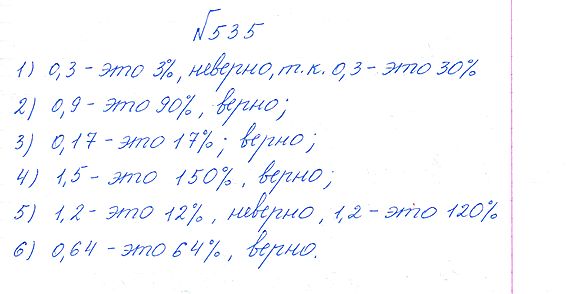 №535
1) 0,3 - это 3%, неверно, т.к. 0,3 - это 30%
2) 0,9 - это 90%, верно;
3) 0,17 - это 17%; верно;
4) 1,5 - это 150%, верно;
5) 1,2 - это 12%, неверно, 1,2 - это 120%
6) 0,64 - это 64%, верно.